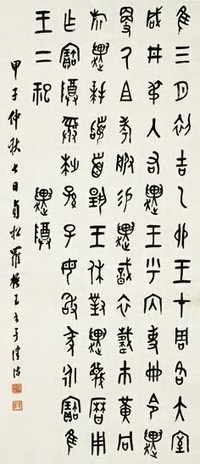 隹三月初吉乙卯王才周各大室
咸井弔入右趩王乎內史冊令趩
更厥且考服易趩戠衣載巿冋黃
旂趩拜稽首揚王休對趩蔑曆用
乍寶尊彝世孫子毋敢墜永寶隹
王二祀 趩尊
甲子仲秋七日貞松羅振玉書于津沽